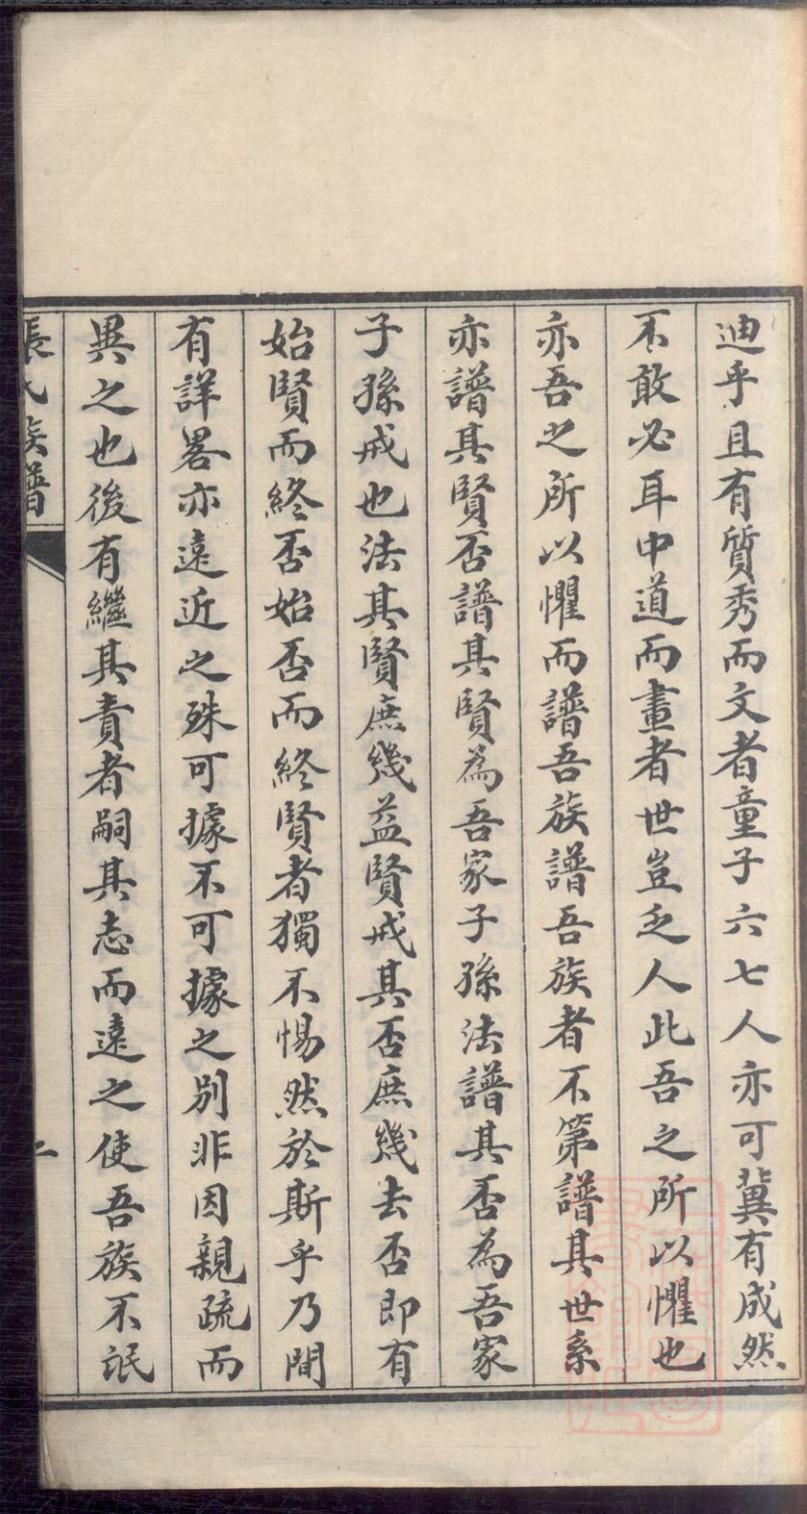 迪乎且有質秀而文者童子六七人亦可冀有成然
不敢必耳中道而畫者世豈乏人此吾之所以懼也
亦吾之所以懼而譜吾族譜吾族者不第譜其世系
亦譜其賢否譜其賢為吾家子孫法譜其否為吾家
子孫戒也法其賢庶幾益賢戒其否庶幾去否即有
始賢而終否始否而終賢者獨不惕然於斯乎乃間
有詳畧亦遠近之殊可據不可據之別非因親疏而
異之也後有繼其責者嗣其志而遠之使吾族不泯
張氏族譜